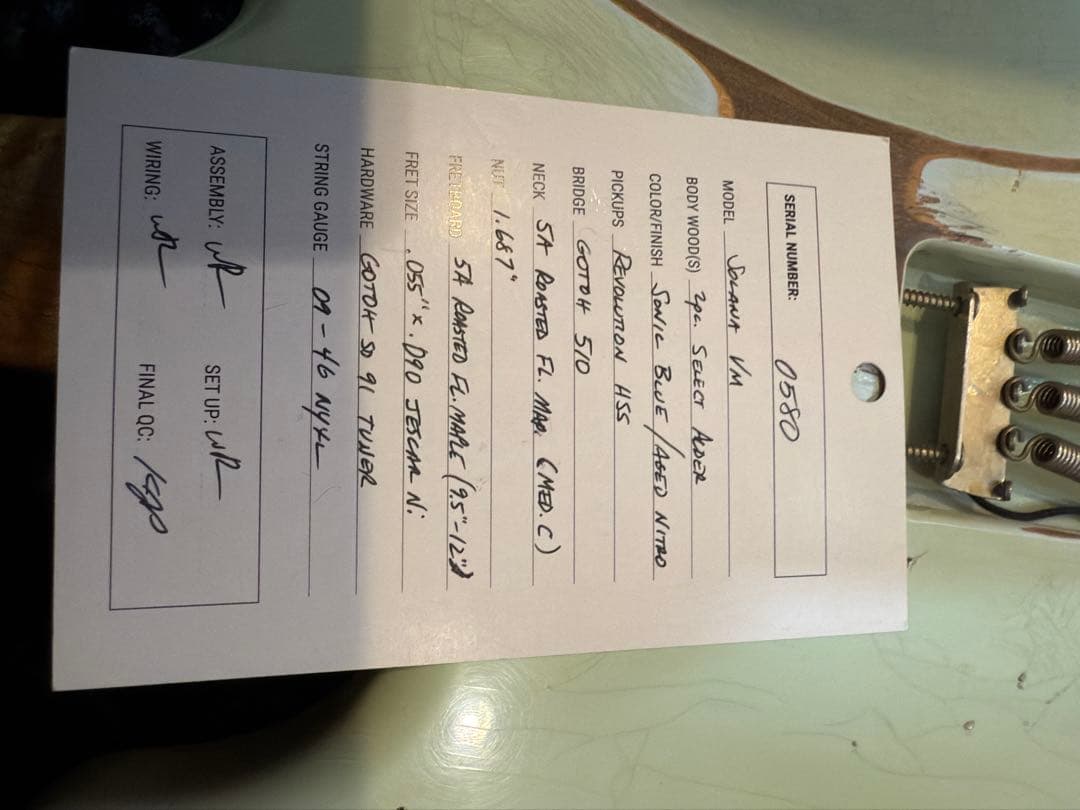 SERIAL NUMBER: 0580
MODEL SOLANA VM
BODY WOOD(S) 2pc. SELECT ALDER
COLOR/FINISH SONIC BLUE / AGED NITRO
PICKUPS REVOLUTION HSS
BRIDGE GOTOH 510
NECK 5A ROASTED FL. MAP. (MED. C)
NUT 1.687"
FRETBOARD 5A ROASTED FL. MAPLE (9.5"-12")
FRET SIZE .055" x .090 JESCAR Ni
HARDWARE GOTOH SD 91 TUNER
STRING GAUGE 09-46 NYXL
ASSEMBLY: WR SET UP: WR
WIRING: WR FINAL QC: